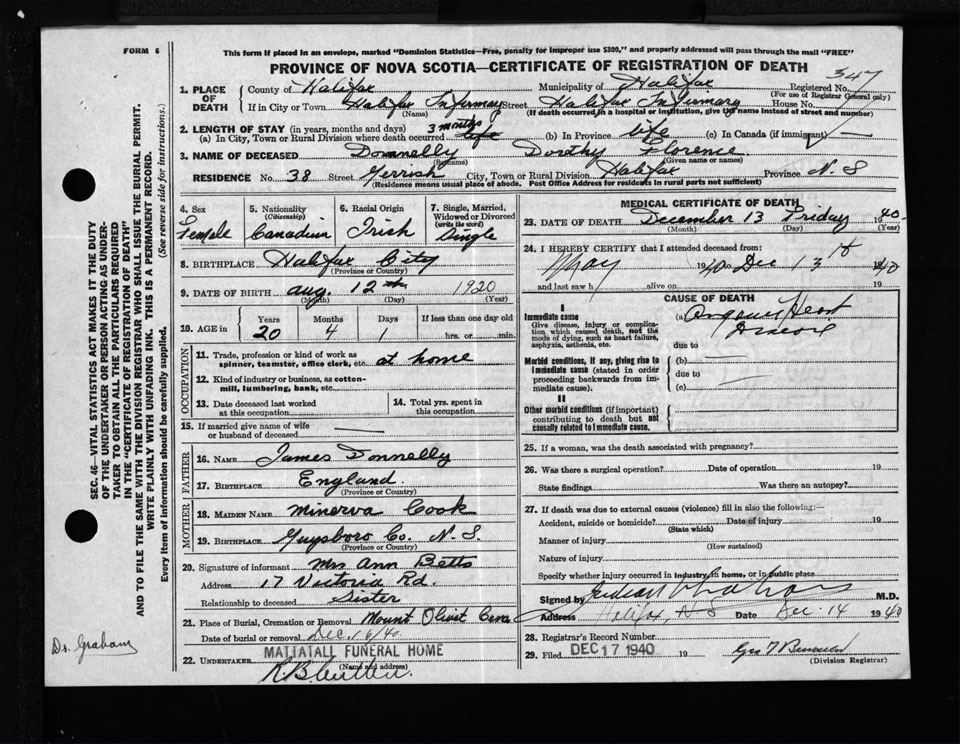 FORM 6
This form if placed in an envelope, marked "Dominion Statistics—Free, penalty for improper use $300," and properly addressed will pass through the mail "FREE"
PROVINCE OF NOVA SCOTIA—CERTIFICATE OF REGISTRATION OF DEATH
347
1. PLACE OF DEATH
County of Halifax Municipality of Halifax Registered No.
(For use of Registrar General only)
If in City or Town Halifax Infirmary Street Halifax Infirmary House No.
(Name) (If death occurred in a hospital or institution, give the name instead of street and number)
2. LENGTH OF STAY (in years, months and days)
(a) In City, Town or Rural Division where death occurred 3 months life (b) In Province life (c) In Canada (if immigrant) —
3. NAME OF DECEASED Donnelly Dorothy Florence
(Surname) (Given name or names)
RESIDENCE No. 38 Street Gerrish City, Town or Rural Division Halifax Province N. S
(Residence means usual place of abode. Post Office Address for residents in rural parts not sufficient)
4. Sex
Female
5. Nationality
(Citizenship)
Canadian
6. Racial Origin
Irish
7. Single, Married,
Widowed or Divorced
(write the word)
Single
8. BIRTHPLACE Halifax City
(Province or Country)
9. DATE OF BIRTH Aug. 12th 1920
(Month) (Day) (Year)
10. AGE in
Years Months Days If less than one day old
20 4 1 hrs. or min.
OCCUPATION
11. Trade, profession or kind of work as
spinner, teamster, office clerk, etc. at home
12. Kind of industry or business, as cotton-
mill, lumbering, bank, etc.
13. Date deceased last worked
at this occupation
14. Total yrs. spent in
this occupation
15. If married give name of wife
or husband of deceased —
FATHER
16. NAME James Donnelly
17. BIRTHPLACE England
(Province or Country)
MOTHER
18. MAIDEN NAME Minerva Cook
19. BIRTHPLACE Guysboro Co. N. S.
(Province or Country)
20. Signature of informant Mrs Ann Betts
Address 17 Victoria Rd.
Relationship to deceased Sister
21. Place of Burial, Cremation or Removal Mount Olivet Cem
Date of burial or removal Dec. 16/40
22. UNDERTAKER MATTATALL FUNERAL HOME
(Name and address)
MEDICAL CERTIFICATE OF DEATH
23. DATE OF DEATH December 13 Friday 1940
(Month) (Day) (Year)
24. I HEREBY CERTIFY that I attended deceased from:
May 1940 Dec 13th 1940
and last saw h alive on 19
CAUSE OF DEATH
I
Immediate cause
Give disease, injury or complica-
tion which caused death, not the
mode of dying, such as heart failure,
asphyxia, asthenia, etc.
(a) Organic Heart
Disease
due to
Morbid conditions, if any, giving rise to
immediate cause (stated in order
proceeding backwards from im-
mediate cause).
(b) —
due to
(c) —
II
Other morbid conditions (if important)
contributing to death but not
causally related to immediate cause.
25. If a woman, was the death associated with pregnancy?
26. Was there a surgical operation? Date of operation 19
State findings Was there an autopsy?
27. If death was due to external causes (violence) fill in also the following:—
Accident, suicide or homicide? Date of injury 19
(State which)
Manner of injury
(How sustained)
Nature of injury
Specify whether injury occurred in industry, in home, or in public place
Signed by Graham M.D.
Address Halifax, N S Date Dec. 14 1940
28. Registrar's Record Number
29. Filed DEC 17 1940 19
(Division Registrar)
SEC. 46—VITAL STATISTICS ACT MAKES IT THE DUTY
OF THE UNDERTAKER OR PERSON ACTING AS UNDER-
TAKER TO OBTAIN ALL THE PARTICULARS REQUIRED
IN THE "CERTIFICATE OF REGISTRATION OF DEATH"
AND TO FILE THE SAME WITH THE DIVISION REGISTRAR WHO SHALL ISSUE THE BURIAL PERMIT.
WRITE PLAINLY WITH UNFADING INK. THIS IS A PERMANENT RECORD.
Every item of information should be carefully supplied. (See reverse side for instructions.)
Dr. Graham